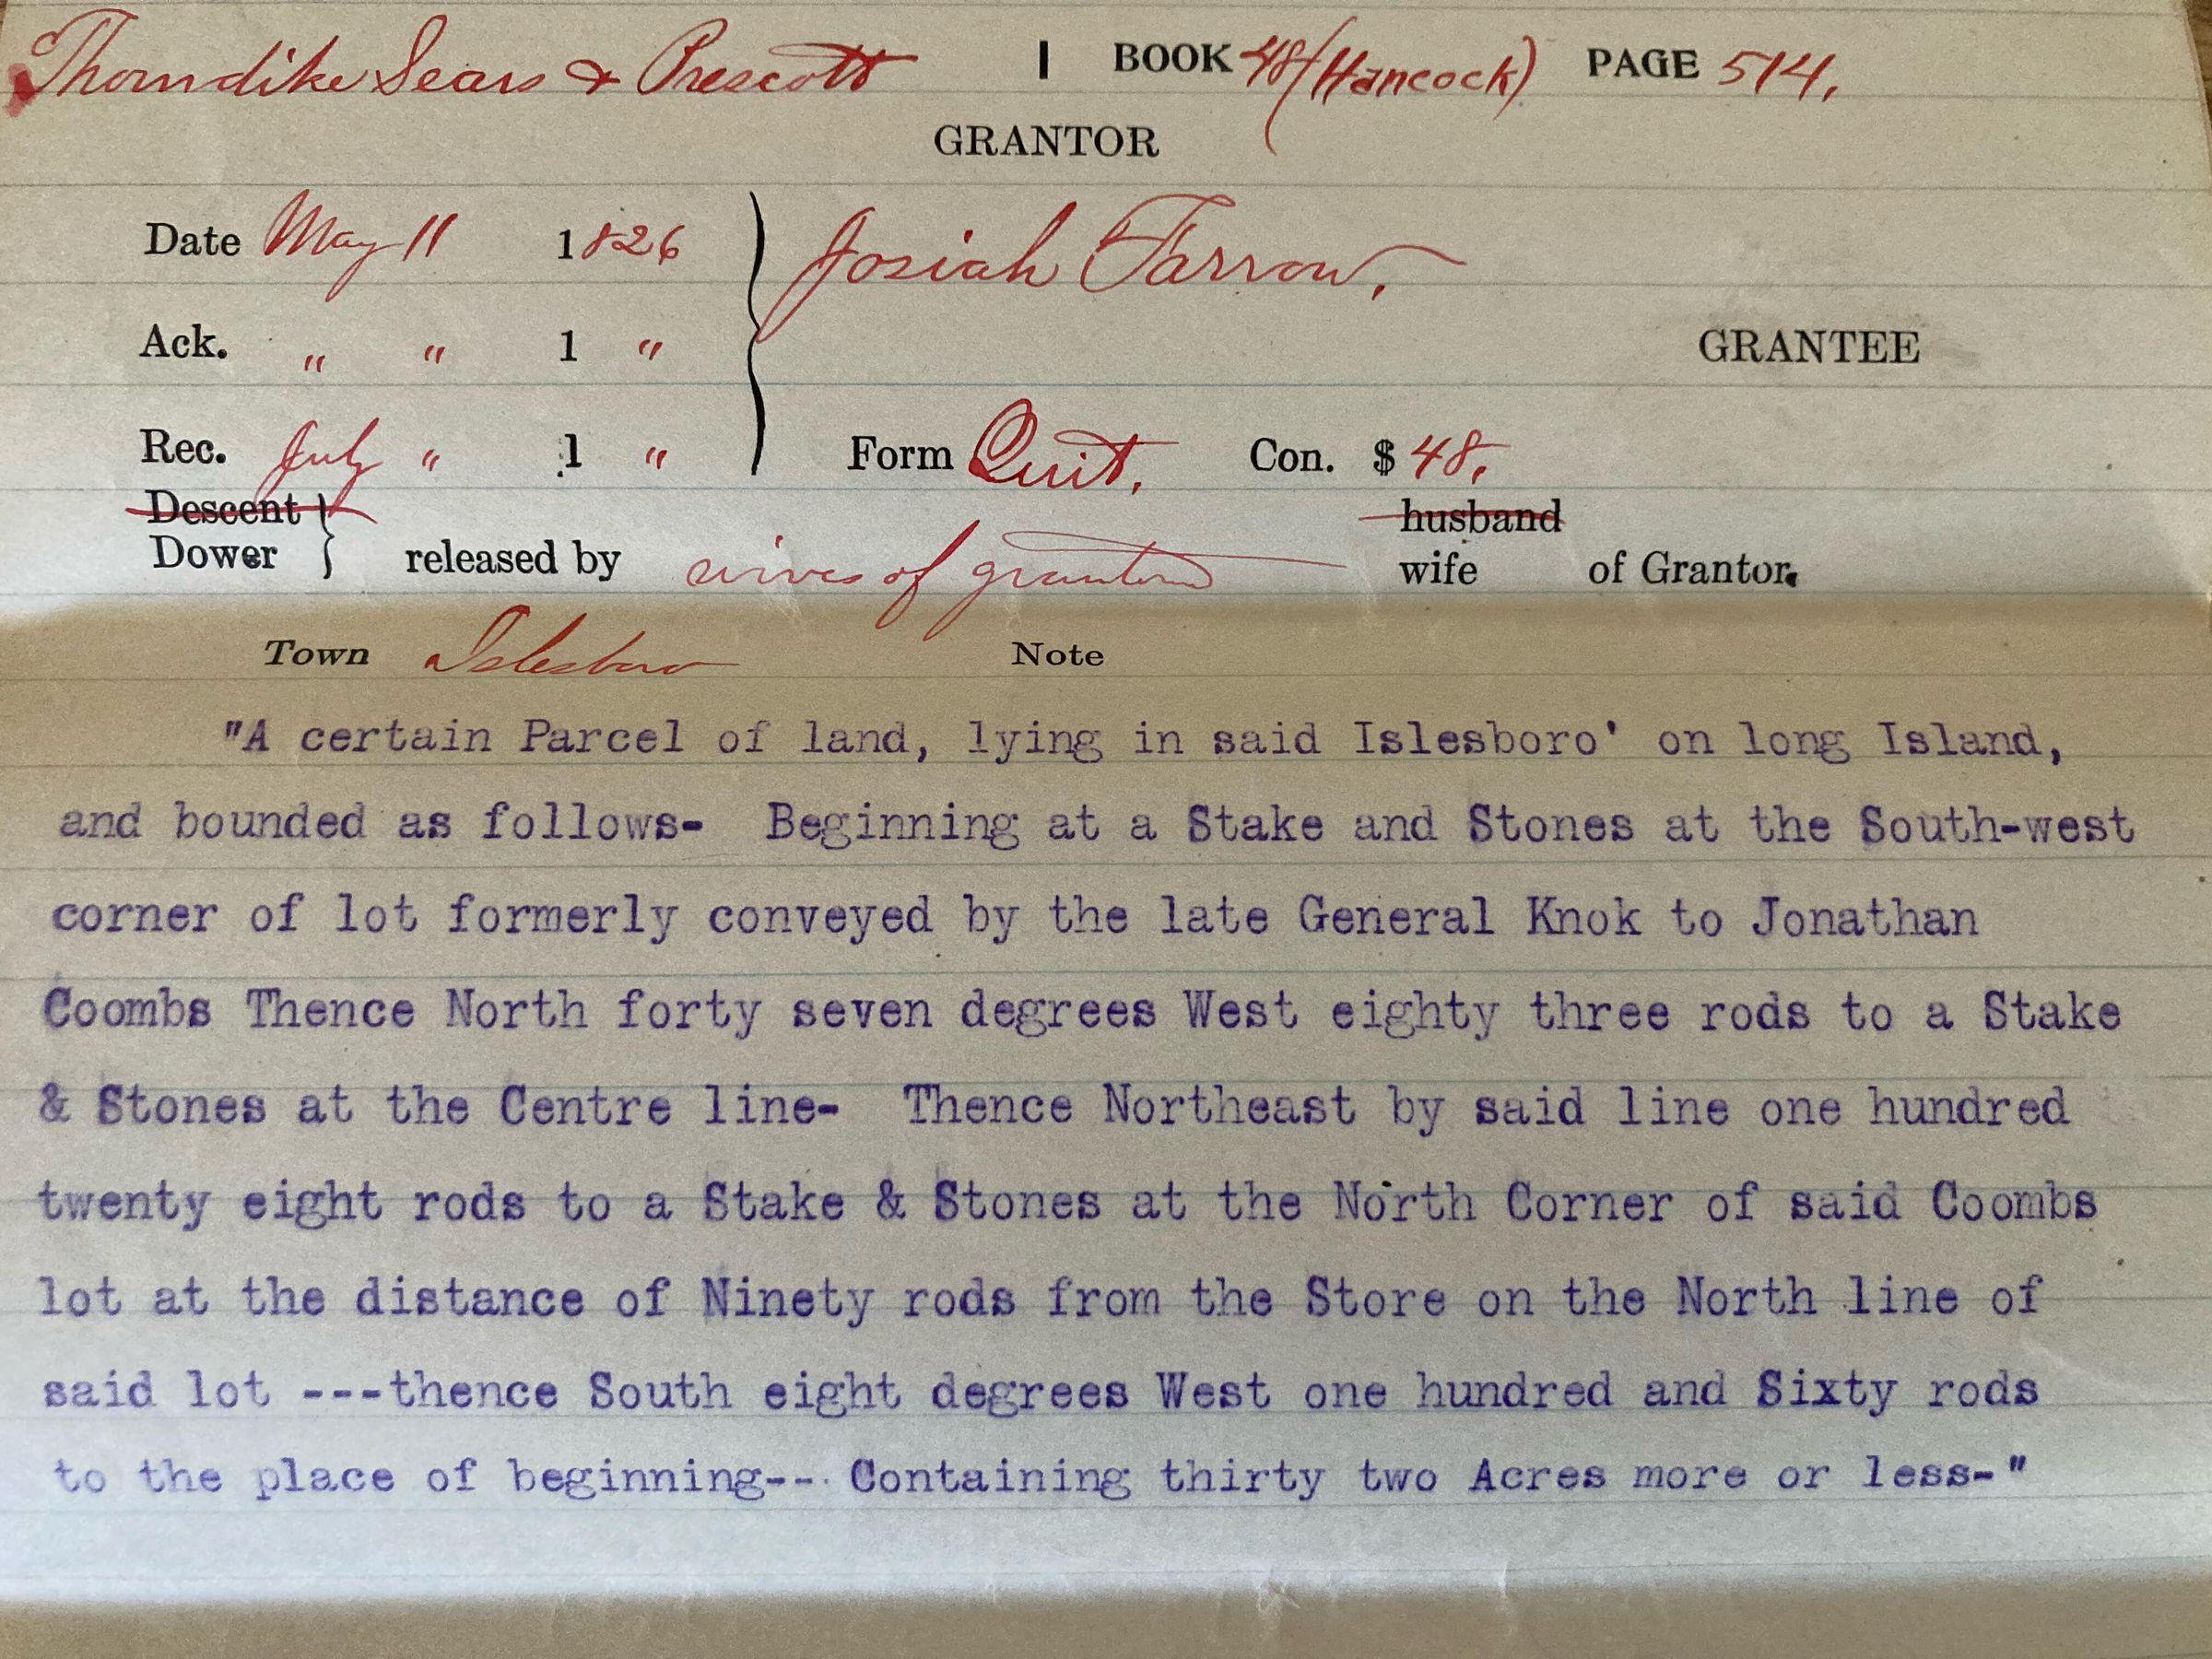 Thorndike Sears & Prescott | BOOK 48 (Hancock) PAGE 514.
GRANTOR
Date May 11 1826 Josiah Farrow.
Ack. " " 1 " GRANTEE
Rec. July " 1 " Form Quit. Con. $ 48.
Descent husband
Dower } released by wives of grantors wife of Grantor.
Town Islesboro Note
"A certain Parcel of land, lying in said Islesboro' on long Island,
and bounded as follows- Beginning at a Stake and Stones at the South-west
corner of lot formerly conveyed by the late General Knok to Jonathan
Coombs Thence North forty seven degrees West eighty three rods to a Stake
& Stones at the Centre line- Thence Northeast by said line one hundred
twenty eight rods to a Stake & Stones at the North Corner of said Coombs
lot at the distance of Ninety rods from the Store on the North line of
said lot ---thence South eight degrees West one hundred and Sixty rods
to the place of beginning--- Containing thirty two Acres more or less-"